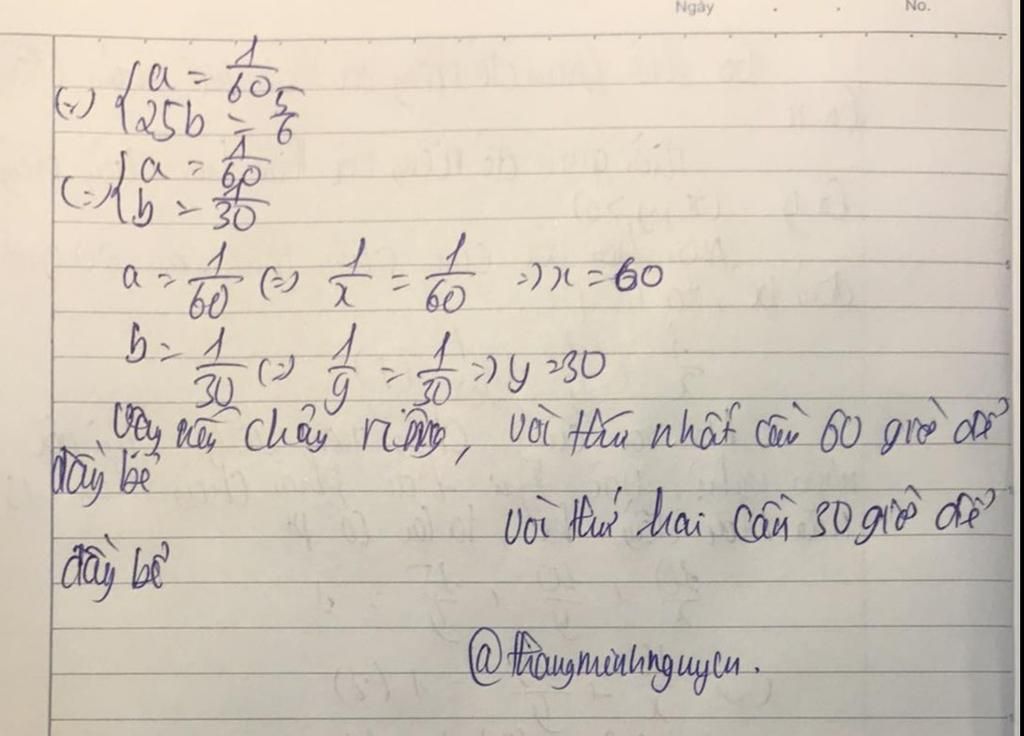 Ngày . . No.
(=) { a = 1/60
25b = 5/6
(=) { a = 1/60
b = 1/30
a = 1/60 (=) 1/x = 1/60 =) x = 60
b = 1/30 (=) 1/y = 1/30 =) y = 30
Vậy nếu chảy riêng, vòi thứ nhất cần 60 giờ để
đầy bể
vòi thứ hai cần 30 giờ để
đầy bể
@thangminhnguyen.